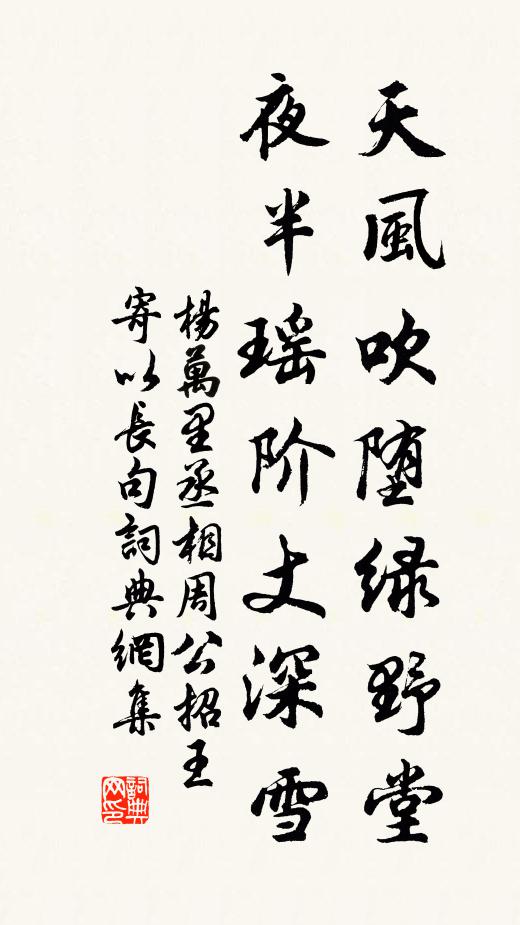 天風吹堕緑野堂
夜半瑶阶丈深雪
楊萬里丞相周公招王
寄以長句詞典網集
詞典网印